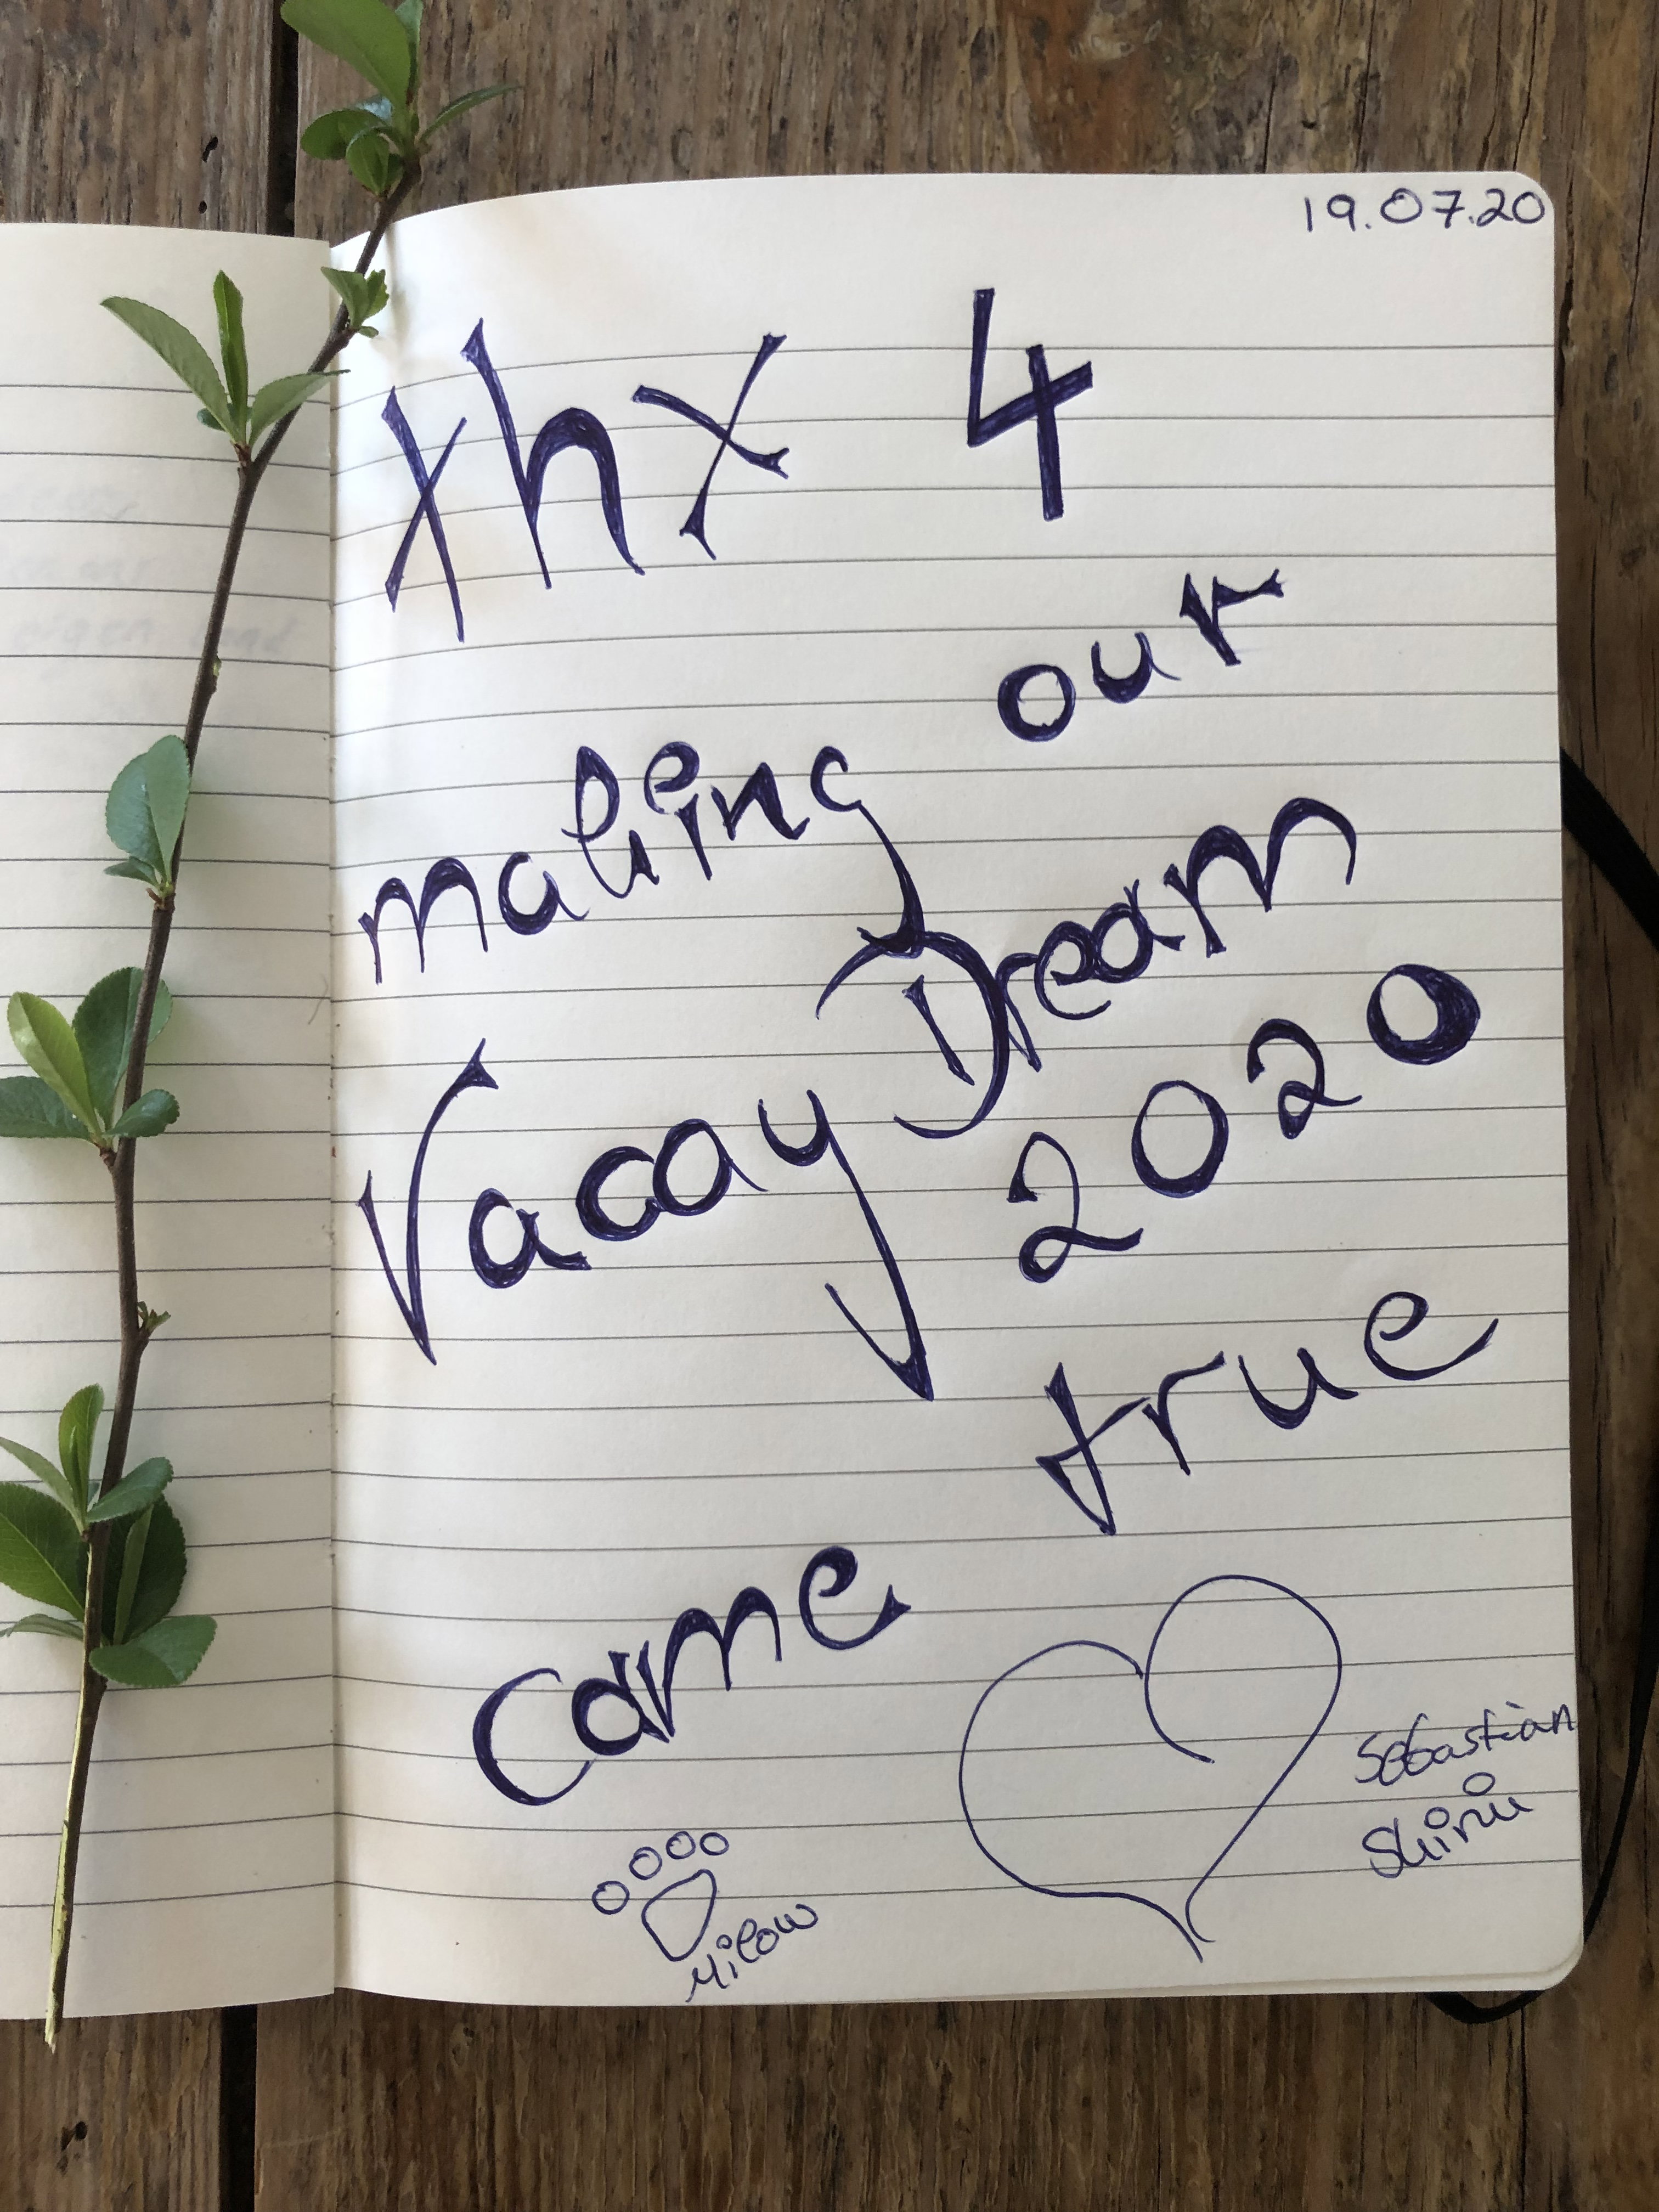 19.07.20
xhx 4
making our
Vacay Dream
2020
came true
Sebastian
Milow